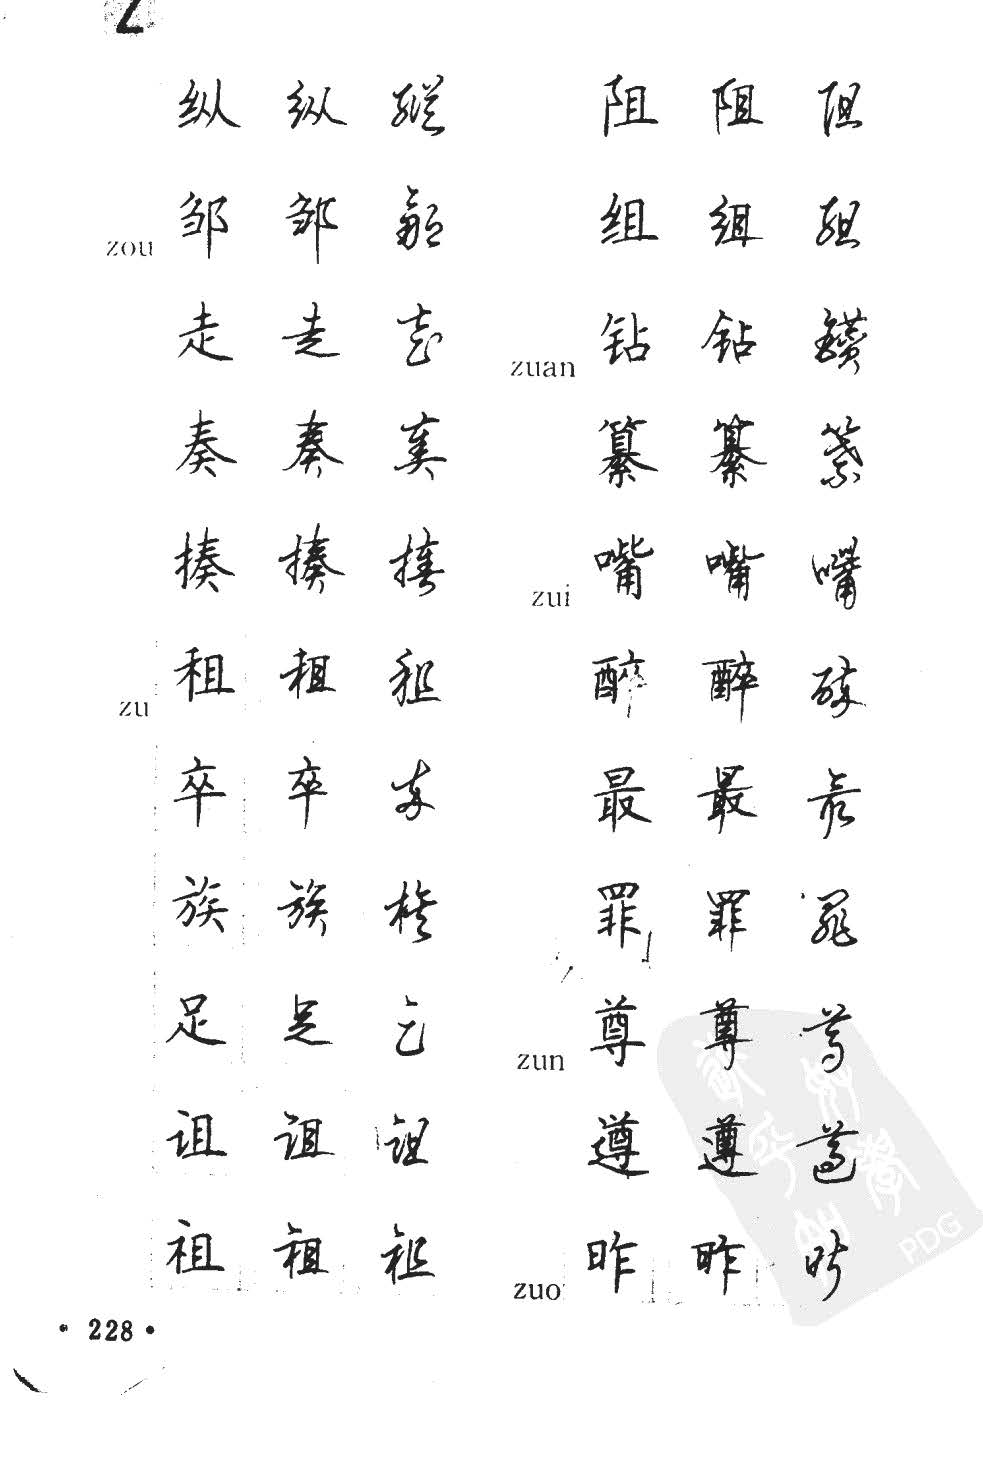 Z
纵 纵 縱
zou 邹 邹 鄒
走 走 走
奏 奏 奏
揍 揍 揍
zu 租 租 租
卒 卒 卒
族 族 族
足 足 足
诅 诅 詛
祖 祖 祖
阻 阻 阻
组 组 組
zuan 钻 钻 鑽
纂 纂 纂
zui 嘴 嘴 嘴
醉 醉 醉
最 最 最
罪 罪 罪
zun 尊 尊 尊
遵 遵 遵
zuo 昨 昨 昨
PDG
· 228 ·